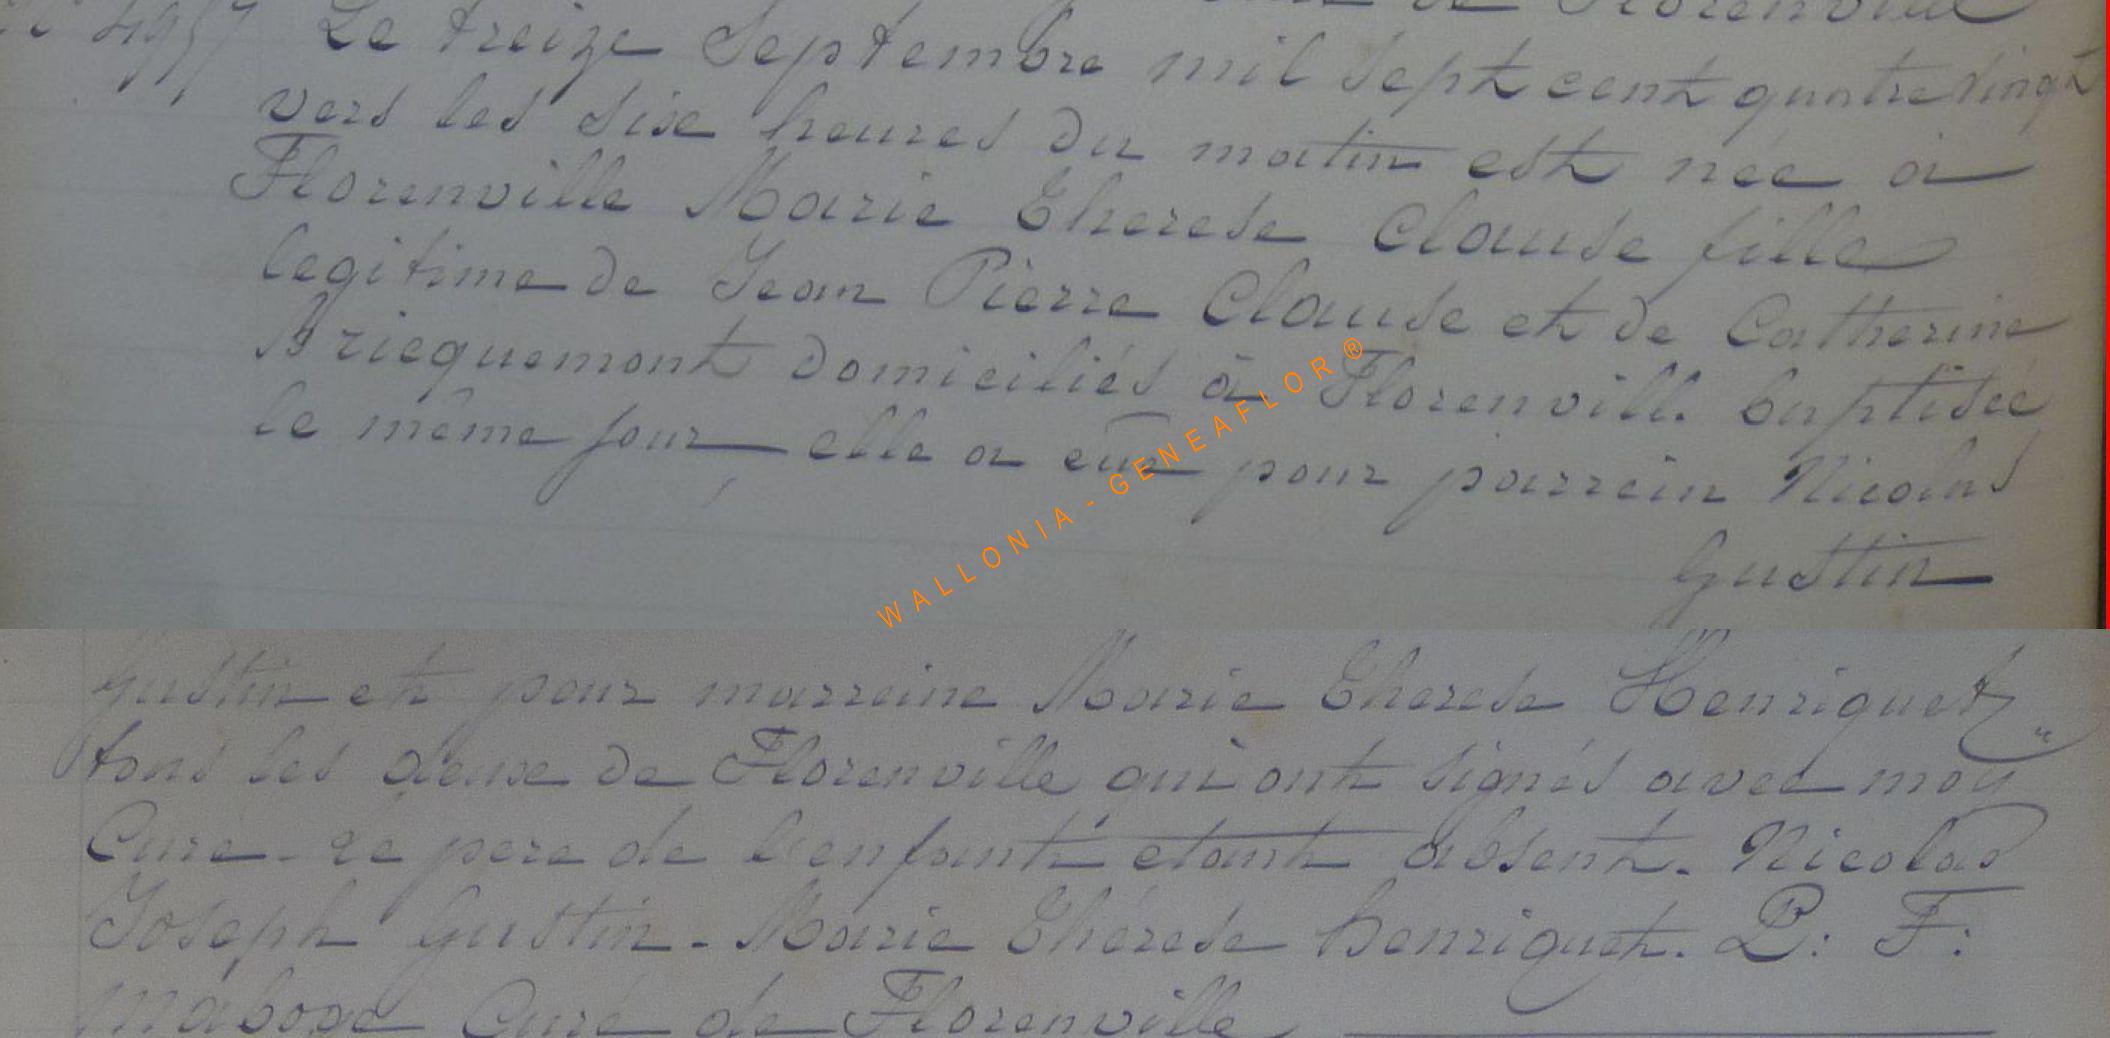 de Florenville
4957 Le treize Septembre mil Sept cent quatre vingt
vers les six heures du matin est née à
Florenville Marie Therese Clause fille
legitime de Jean Pierre Clause et de Catherine
Bricquemont domiciliés à Florenvill. baptisée
le même jour, elle a eue pour parrein Nicolas
Gustin
WALLONIA-GENEAFLOR®
Gustin et pour marreine Marie Therese Henriquet
tous les deuxe de Florenville qui ont signés avec moy
Curé. Le pere de l'enfant étant absent. Nicolas
Joseph Gustin. Marie Thérese henriquet. P: F:
Curé de Florenville